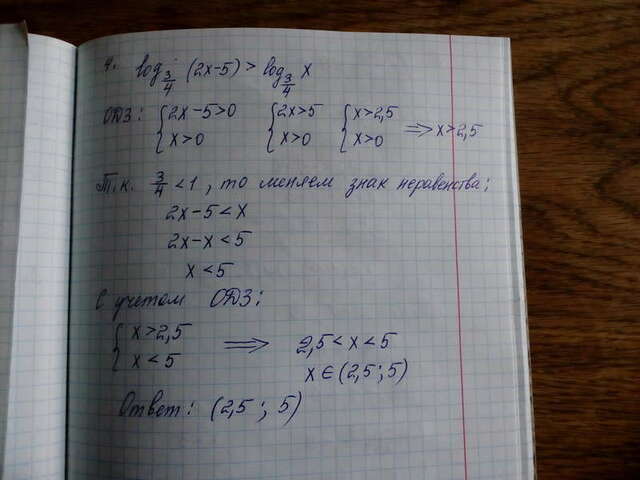 4. log_{3/4} (2x-5) > log_{3/4} x
ОДЗ: { 2x-5>0 { 2x>5 { x>2,5 ⟹ x>2,5
{ x>0 { x>0 { x>0
Т.к. 3/4 <1, то меняем знак неравенства:
2x-5<x
2x-x<5
x<5
С учетом ОДЗ:
{ x>2,5 ⟹ 2,5<x<5
{ x<5 x∈(2,5; 5)
Ответ: (2,5; 5)